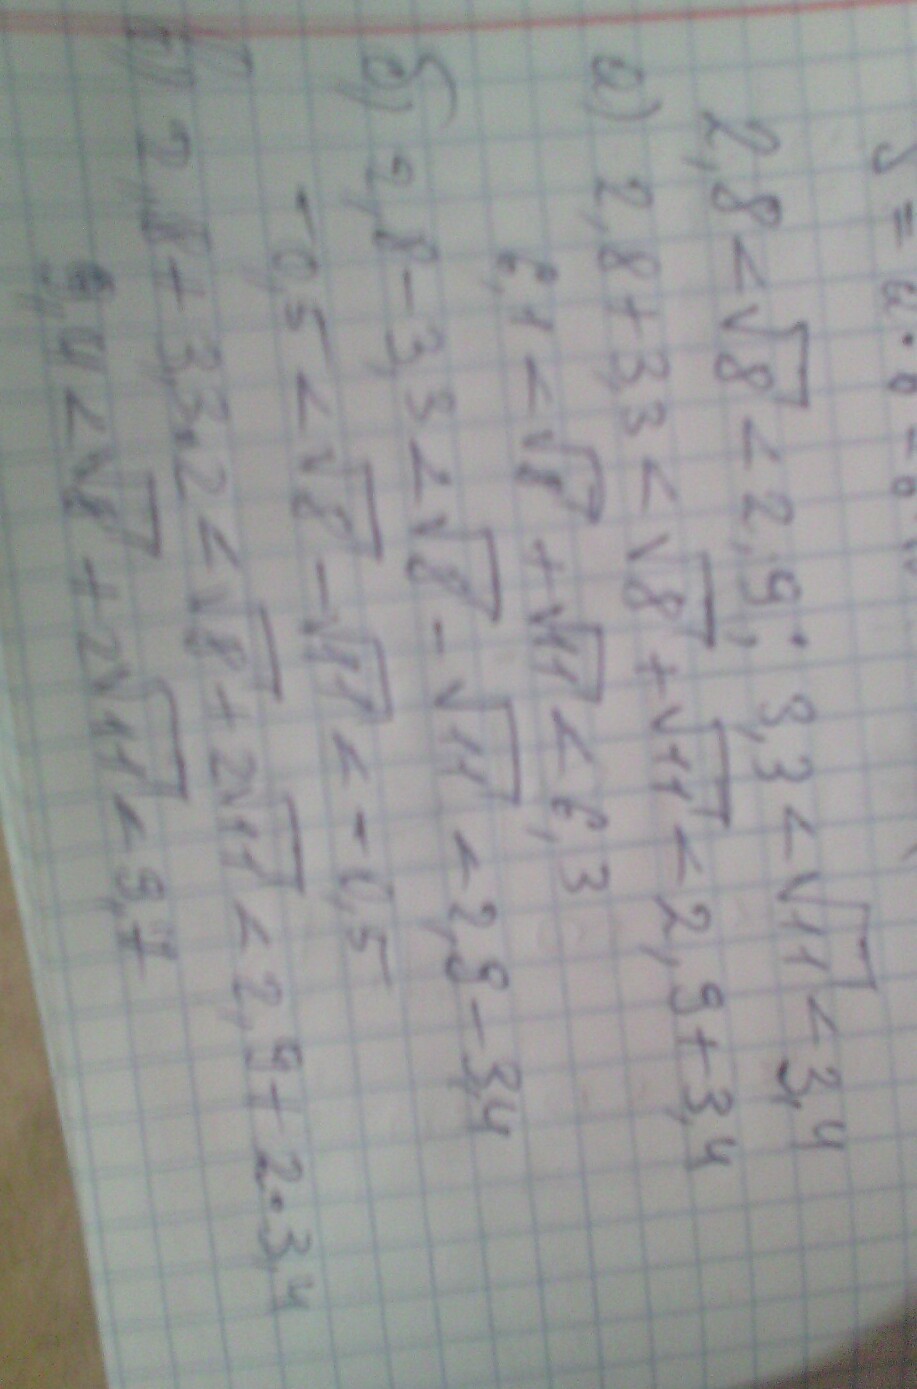 S = a · b
2,8 < √8 < 2,9; 3,3 < √11 < 3,4
а) 2,8 + 3,3 < √8 + √11 < 2,9 + 3,4
6,1 < √8 + √11 < 6,3
б) 2,8 - 3,3 < √8 - √11 < 2,9 - 3,4
-0,5 < √8 - √11 < -0,5
в) 2,8 + 3,3·2 < √8 + 2√11 < 2,9 + 2·3,4
9,4 < √8 + 2√11 < 9,7